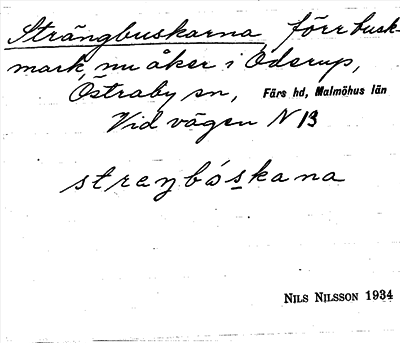 Strängbuskarna förr busk-
mark, nu åker i Oderup,
Östraby sn, Färs hd, Malmöhus län
Vid vägen N 13
streŋbóskana
NILS NILSSON 1934